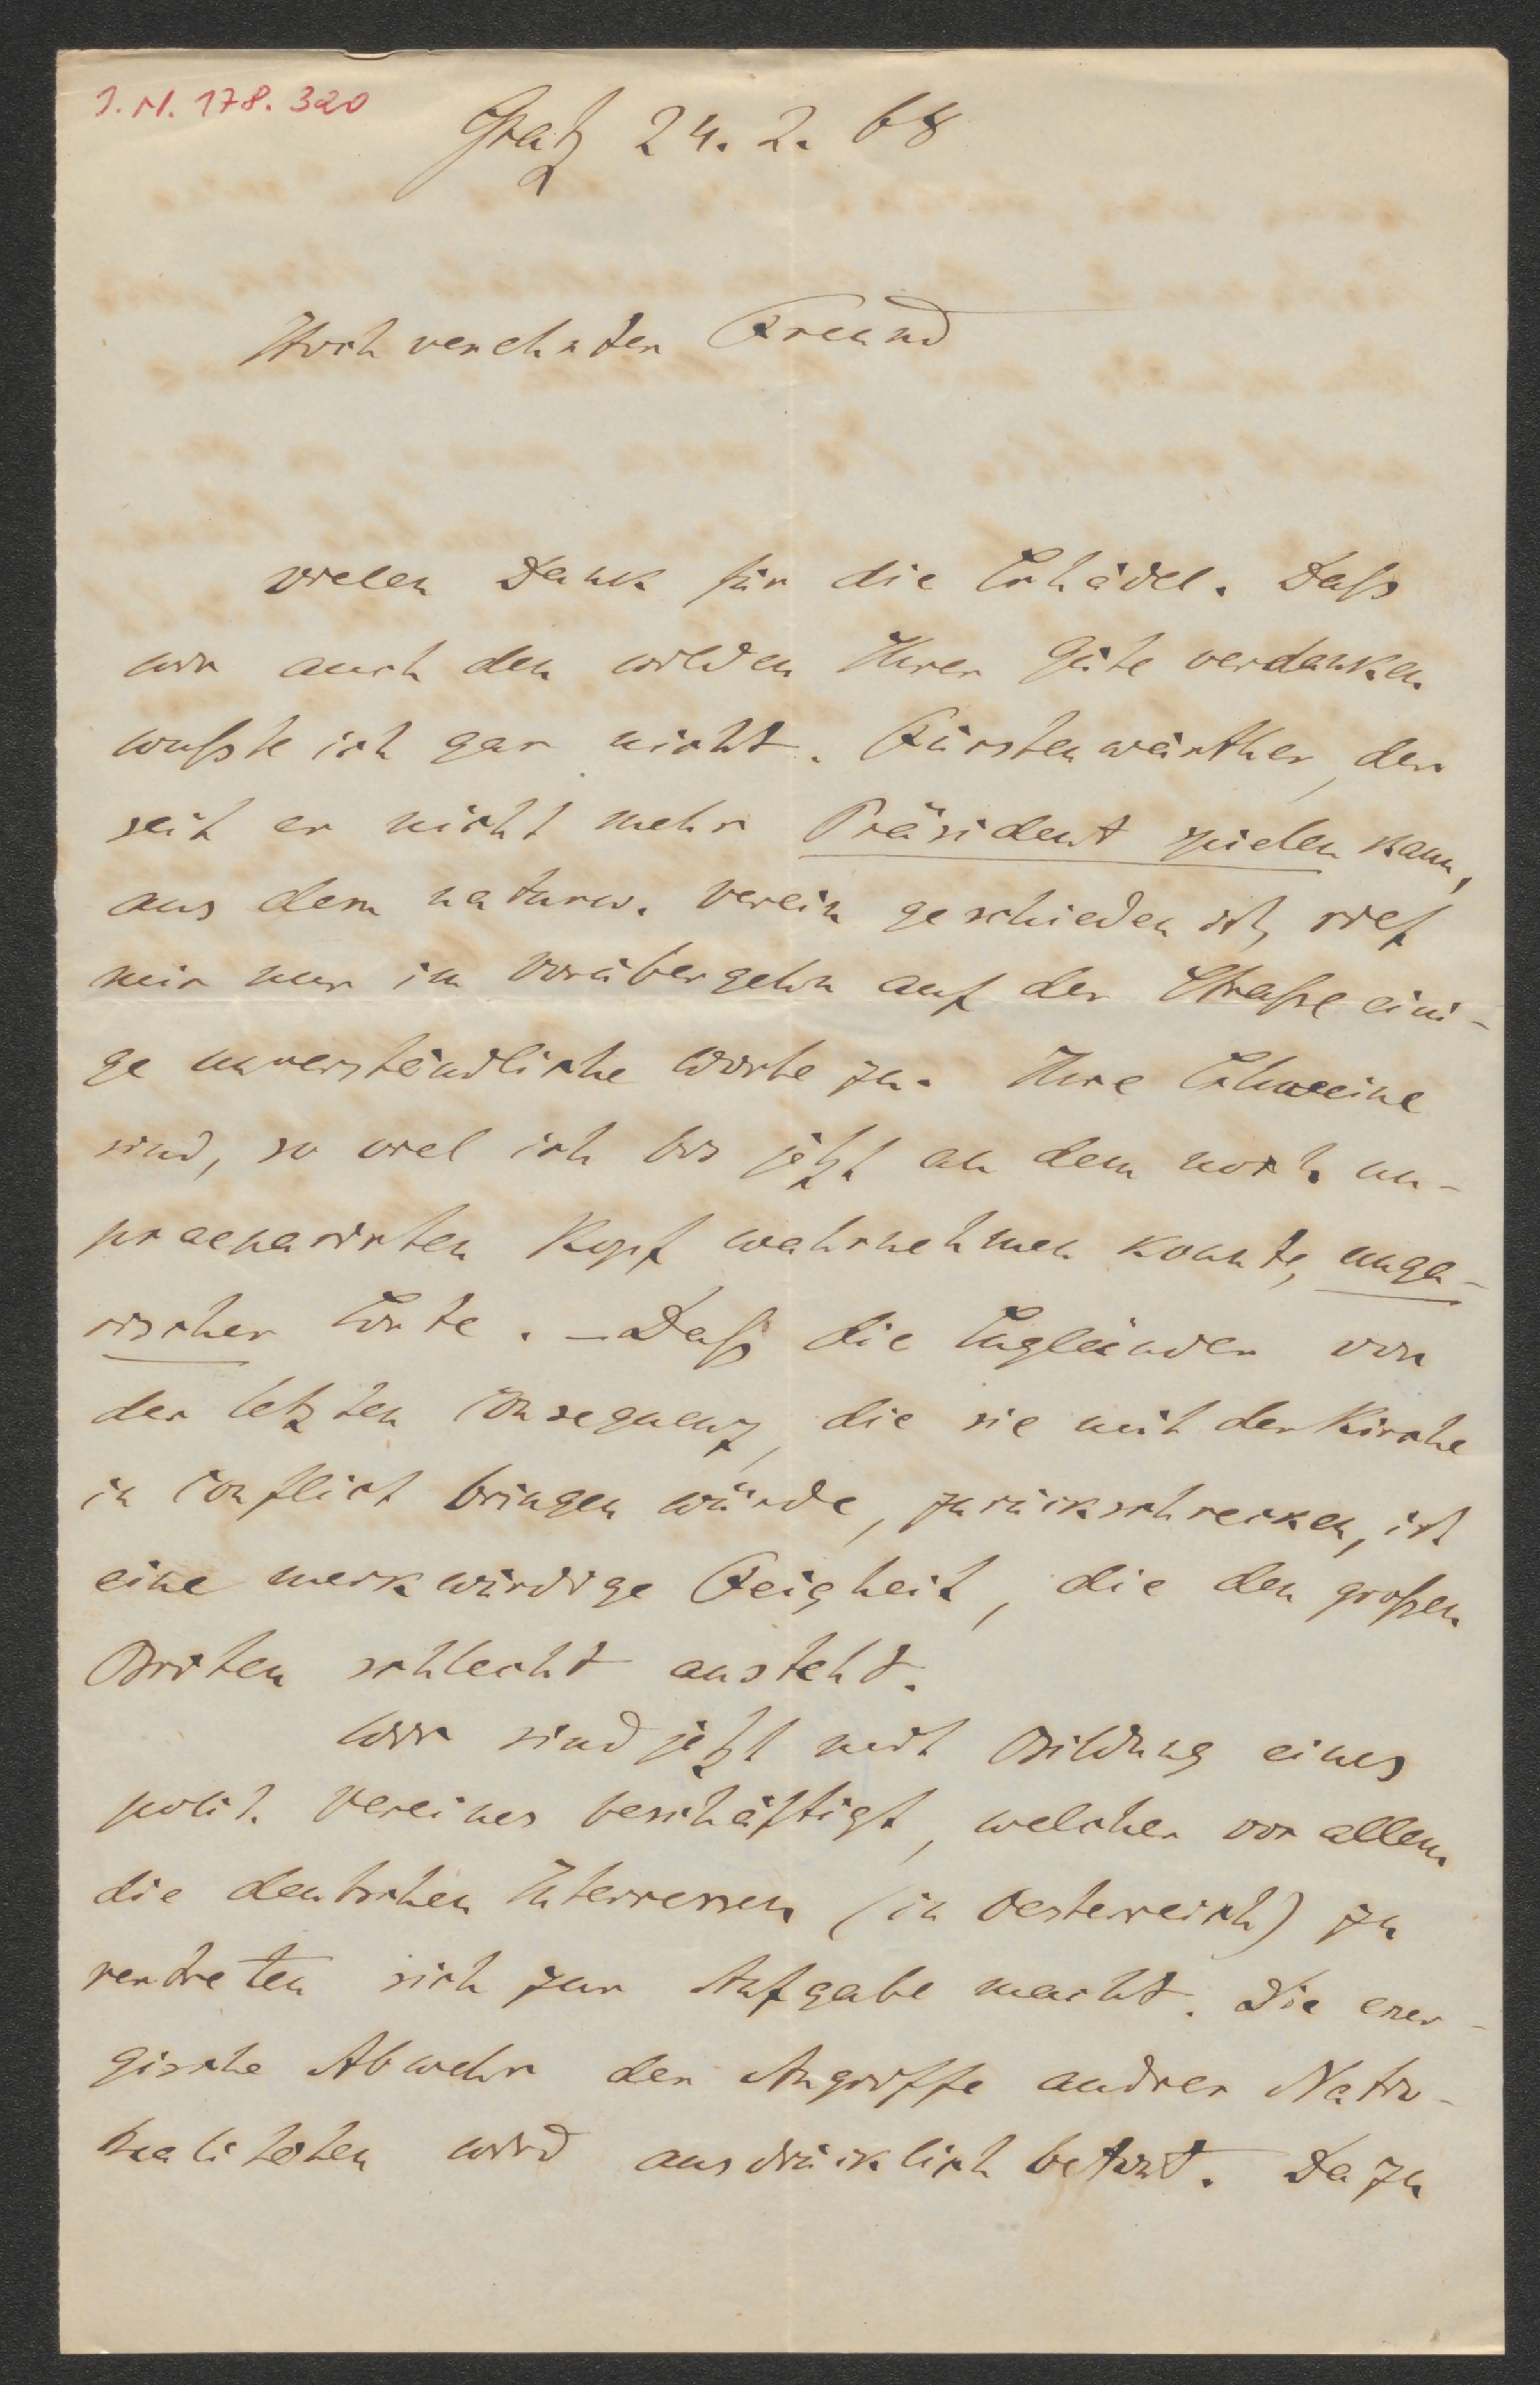 J.N. 178.320
Gratz 24. 2. 68
Hochverehrter Freund
vielen Dank für die Schädel. Daß
wir auch den wilden Ihrer Güte verdanken
wußte ich gar nicht. Fürstenwärther, der
seit er nicht mehr Präsident spielen kann,
aus dem naturw. Verein geschieden ist, rief
mir nur im Vorübergehn auf der Straße eini-
ge unverständliche Worte zu. Ihre Schweine
sind, so viel ich bis jetzt an dem noch un-
praeparirten Kopf wahrnehmen konnte, unga-
rischer Sorte. – Daß die Engländer von
der letzten Consequenz, die sie mit der Kirche
in Conflict bringen würde, zurückschrecken, ist
eine merkwürdige Feigheit, die den großen
Briten schlecht ansteht.
Wir sind jetzt mit Bildung eines
polit. Vereines beschäftigt, welcher vor allem
die deutschen Interressen (in Oesterreich) zu
vertreten sich zur Aufgabe macht. Die ener-
gische Abwehr der Angriffe andrer Natio-
nalitäten wird ausdrücklich betont. Dazu